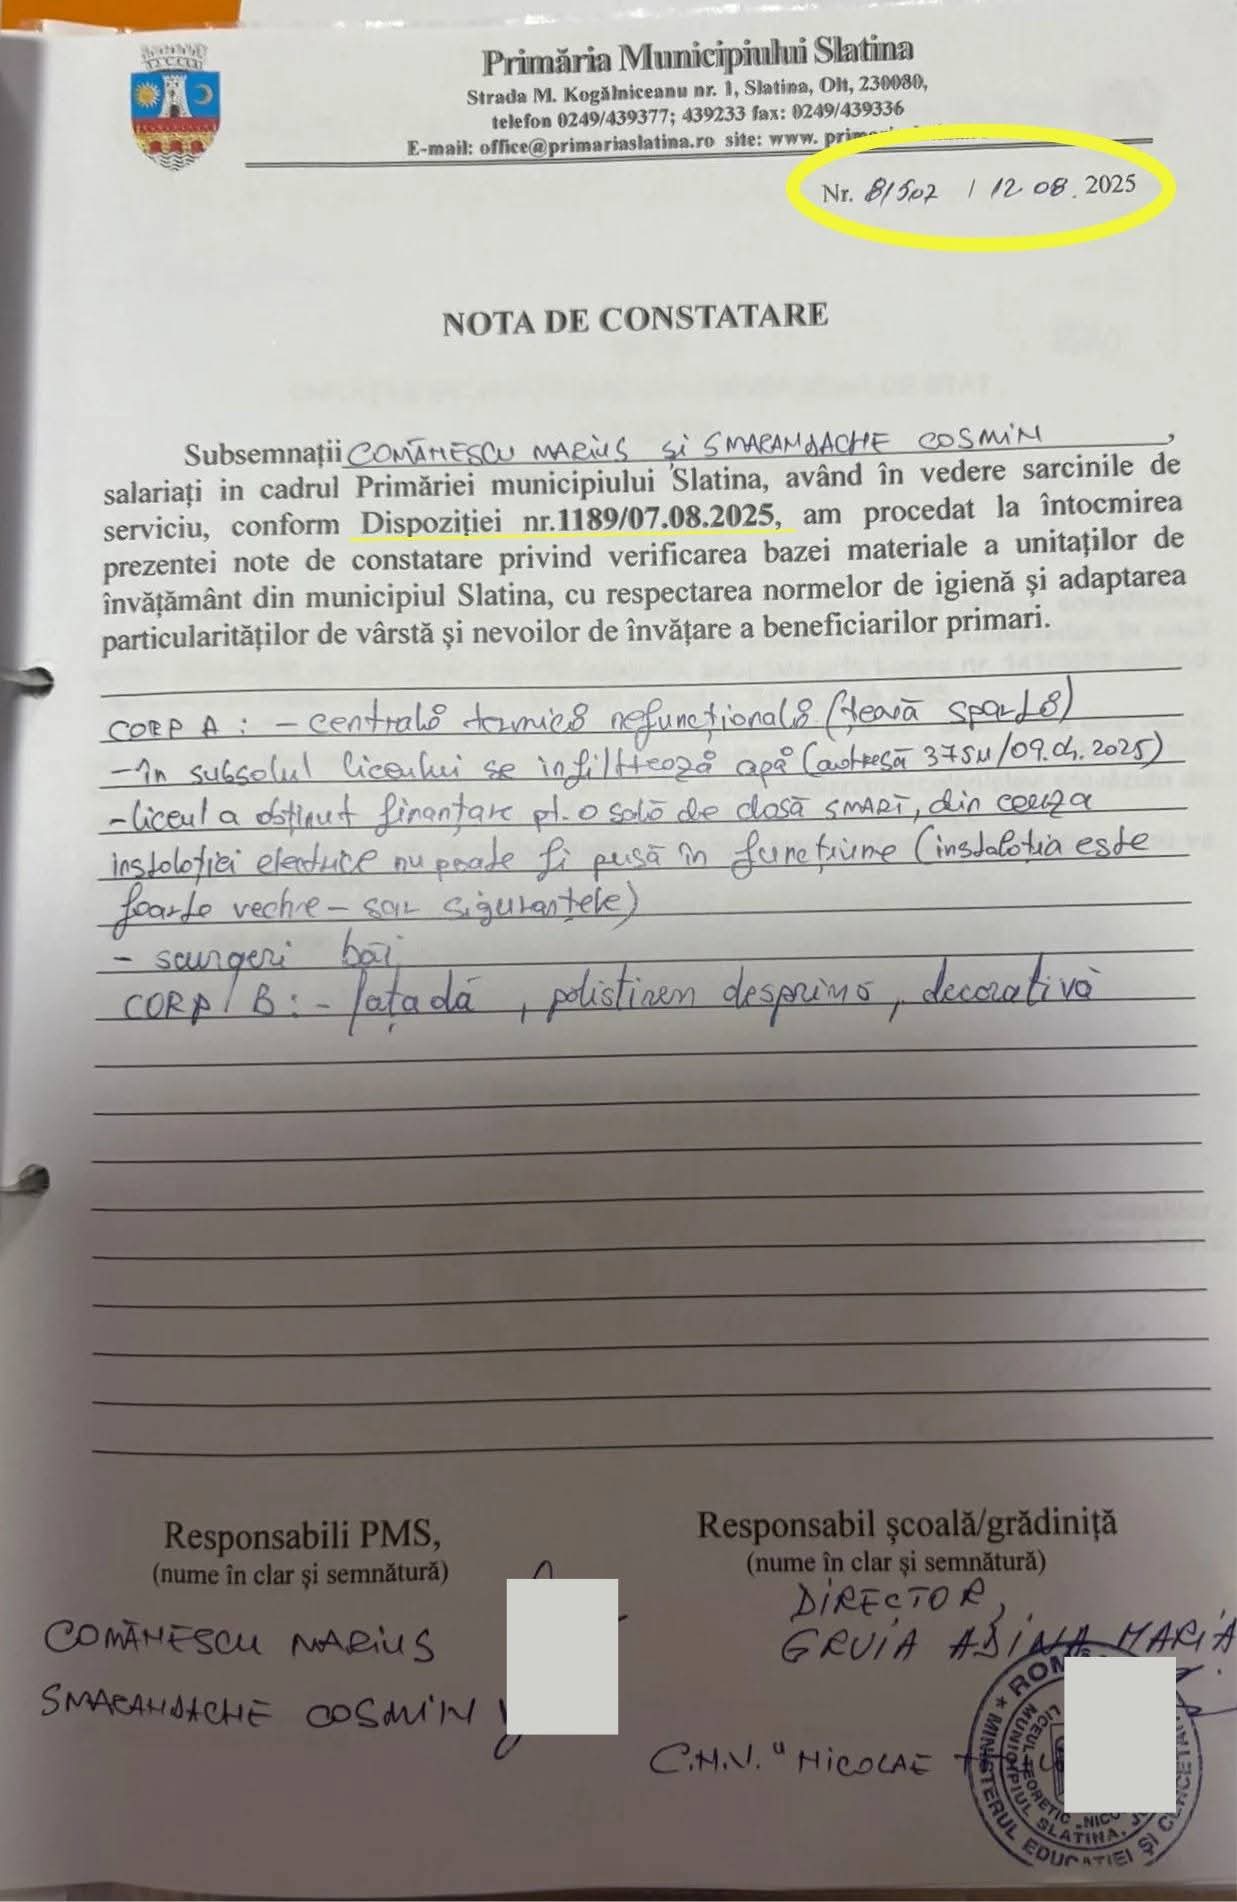 Primăria Municipiului Slatina
Strada M. Kogălniceanu nr. 1, Slatina, Olt, 230080,
telefon 0249/439377; 439233 fax: 0249/439336
E-mail: office@primariaslatina.ro site: www.
Nr. 81502 / 12 08. 2025
NOTA DE CONSTATARE
Subsemnații COMĂNESCU MARIUS și SMARANDACHE COSMIN,
salariați in cadrul Primăriei municipiului Slatina, având în vedere sarcinile de
serviciu, conform Dispoziției nr.1189/07.08.2025, am procedat la întocmirea
prezentei note de constatare privind verificarea bazei materiale a unitaților de
învățământ din municipiul Slatina, cu respectarea normelor de igienă și adaptarea
particularităților de vârstă și nevoilor de învățare a beneficiarilor primari.
CORP A: - centrală termică nefuncțională (țeavă spartă)
- în subsolul liceului se infiltrează apă (adresă /09.04.2025)
- liceul a obținut finanțare pt. o sală de clasă SMART, din cauza
instalației electrice nu poate fi pusă în funcțiune (instalația este
foarte veche - sar siguranțele)
- scurgeri băi
CORP B: - fațadă, polistiren desprins, decorativă
Responsabili PMS,
(nume în clar și semnătură)
COMĂNESCU MARIUS
SMARANDACHE COSMIN
Responsabil școală/grădiniță
(nume în clar și semnătură)
DIRECTOR,
GRUIA ADINA MARIA
C.N.V. "NICOLAE
MINISTERUL EDUCAȚIEI ȘI
LICEUL TEORETIC „NIC
MUNICIPIUL SLATINA,